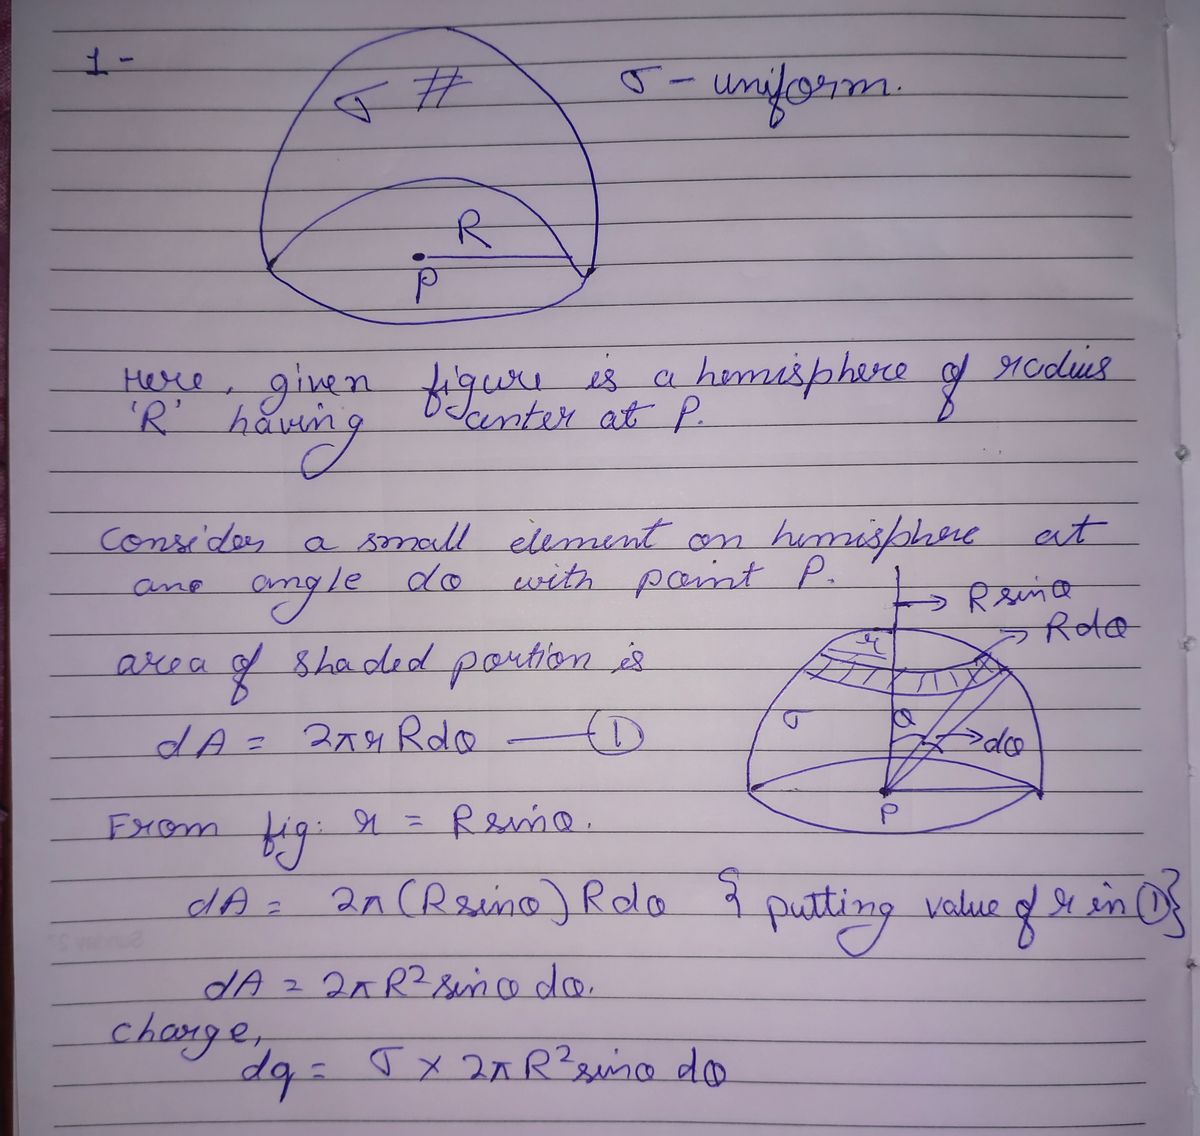 1-
σ #
σ - uniform.
R
P
Here, given figure is a hemisphere of radius
'R' having center at P.
Consider a small element on hemisphere at
ane angle dθ with point P.
→ R sinθ
→ Rdθ
r
area of shaded portion is
σ
θ
→dθ
dA = 2πr Rdθ —— ①
P
From fig: r = R sinθ.
dA = 2π (R sinθ) Rdθ { putting value of r in ①}
dA = 2πR² sinθ dθ.
charge,
dq = σ × 2πR² sinθ dθ